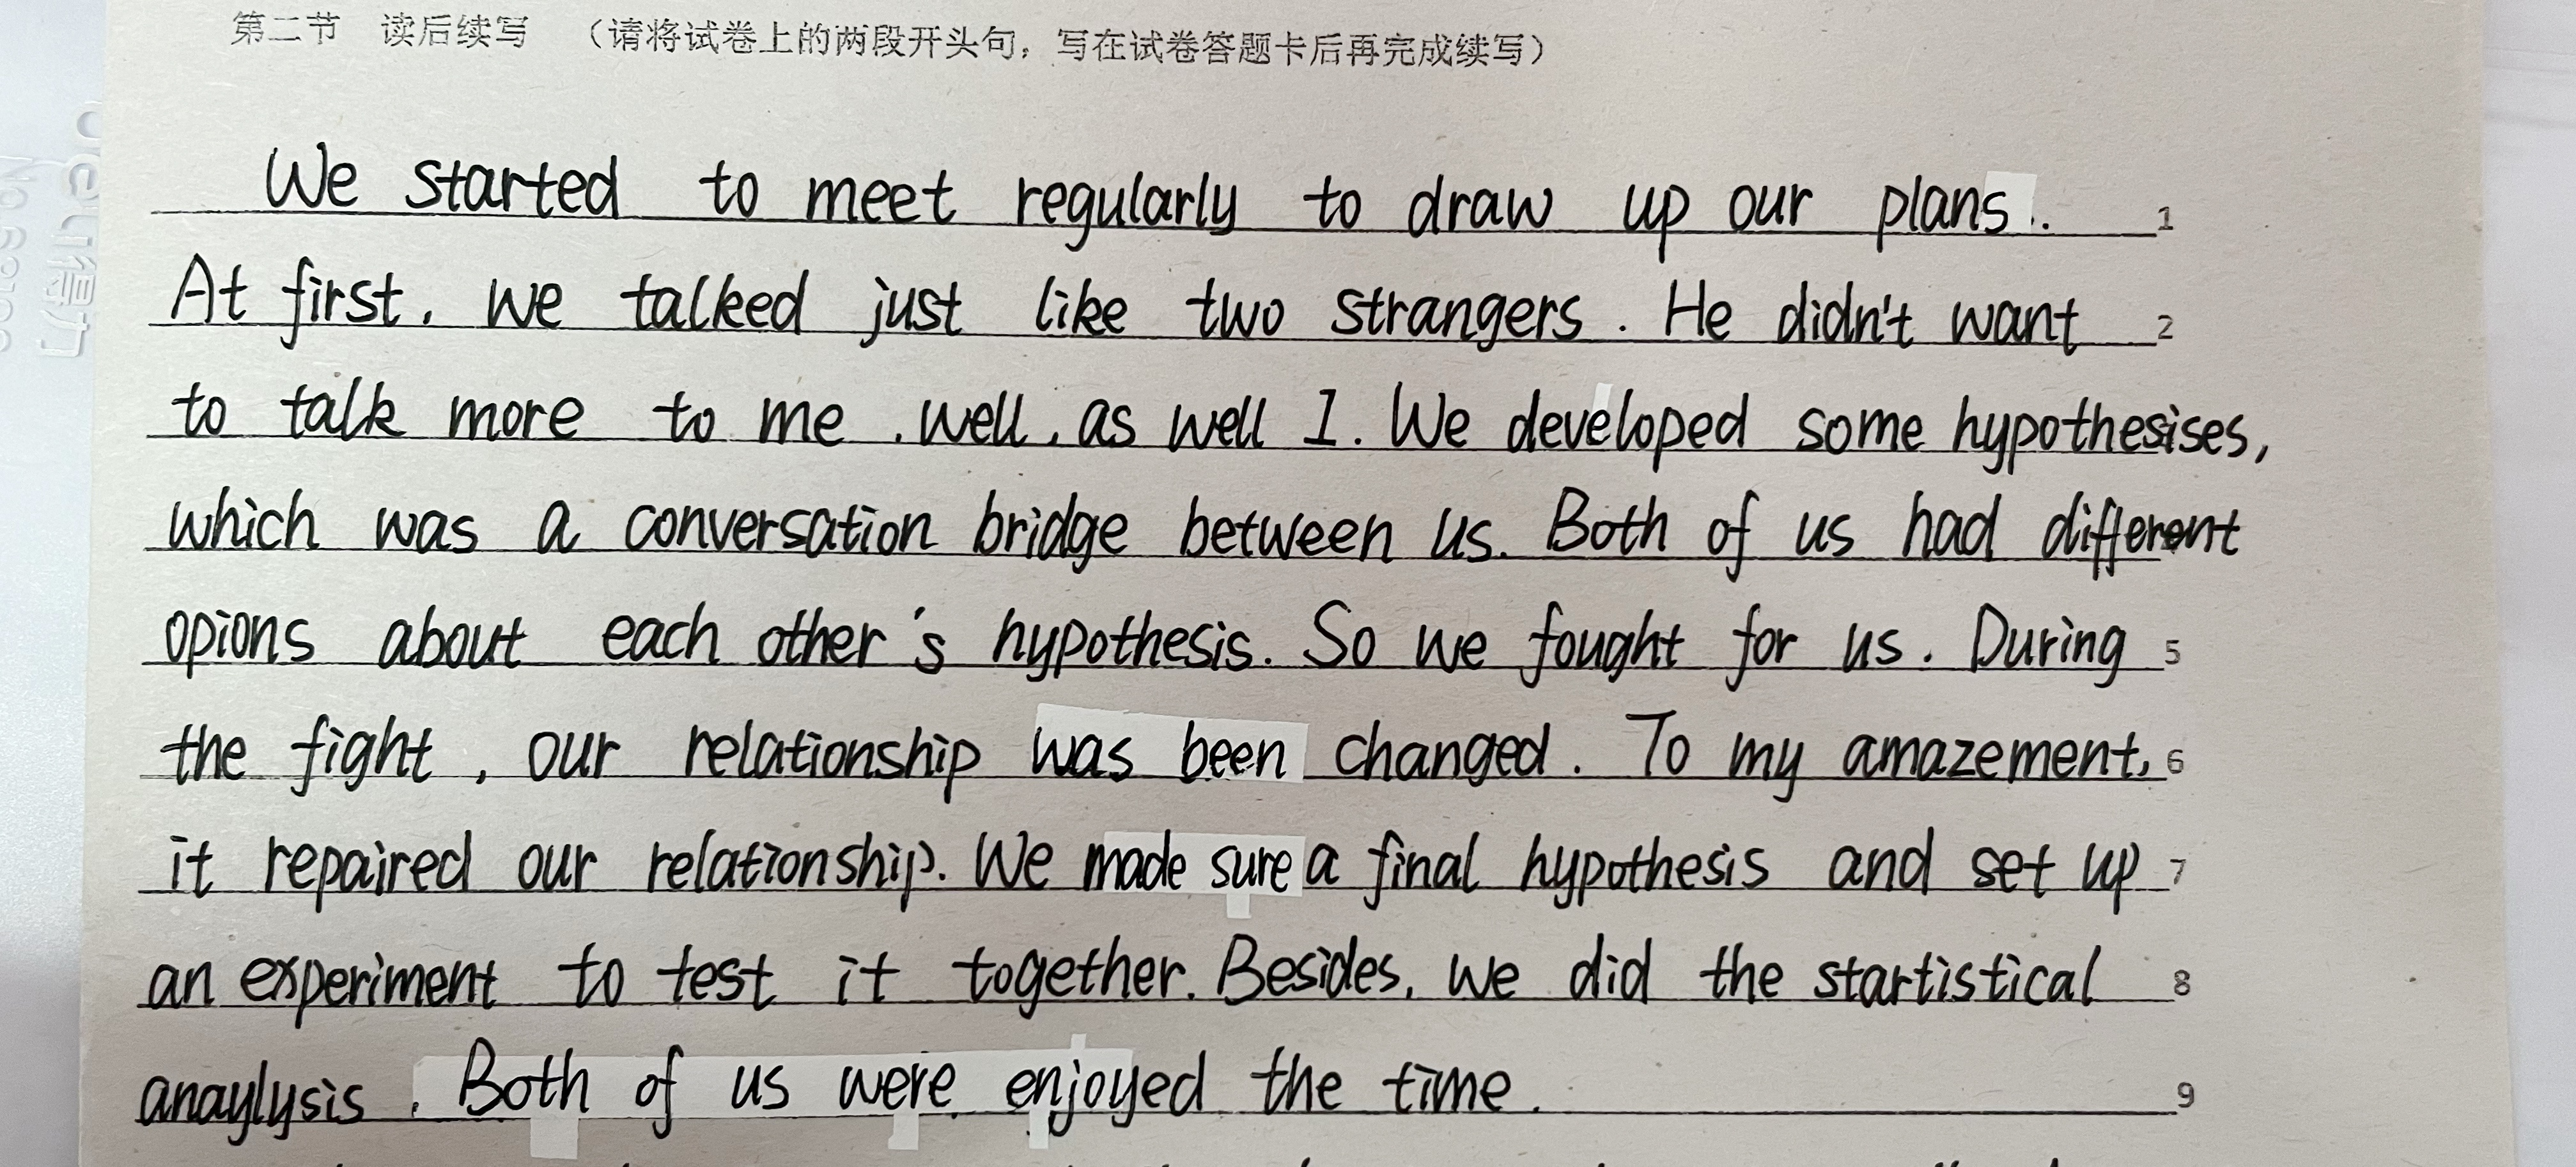 第二节 读后续写 （请将试卷上的两段开头句，写在试卷答题卡后再完成续写）
We started to meet regularly to draw up our plans. 1
At first, we talked just like two strangers. He didn't want 2
to talk more to me. well, as well I. We developed some hypothesises,
which was a conversation bridge between us. Both of us had different
opions about each other's hypothesis. So we fought for us. During 5
the fight, our relationship was been changed. To my amazement, 6
it repaired our relationship. We made sure a final hypothesis and set up 7
an experiment to test it together. Besides, we did the startistical 8
anaylysis. Both of us were enjoyed the time. 9